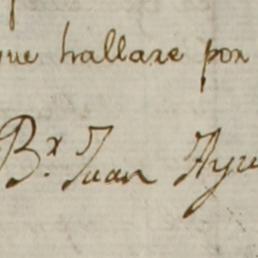 que hallare por
B.r Juan Ayu